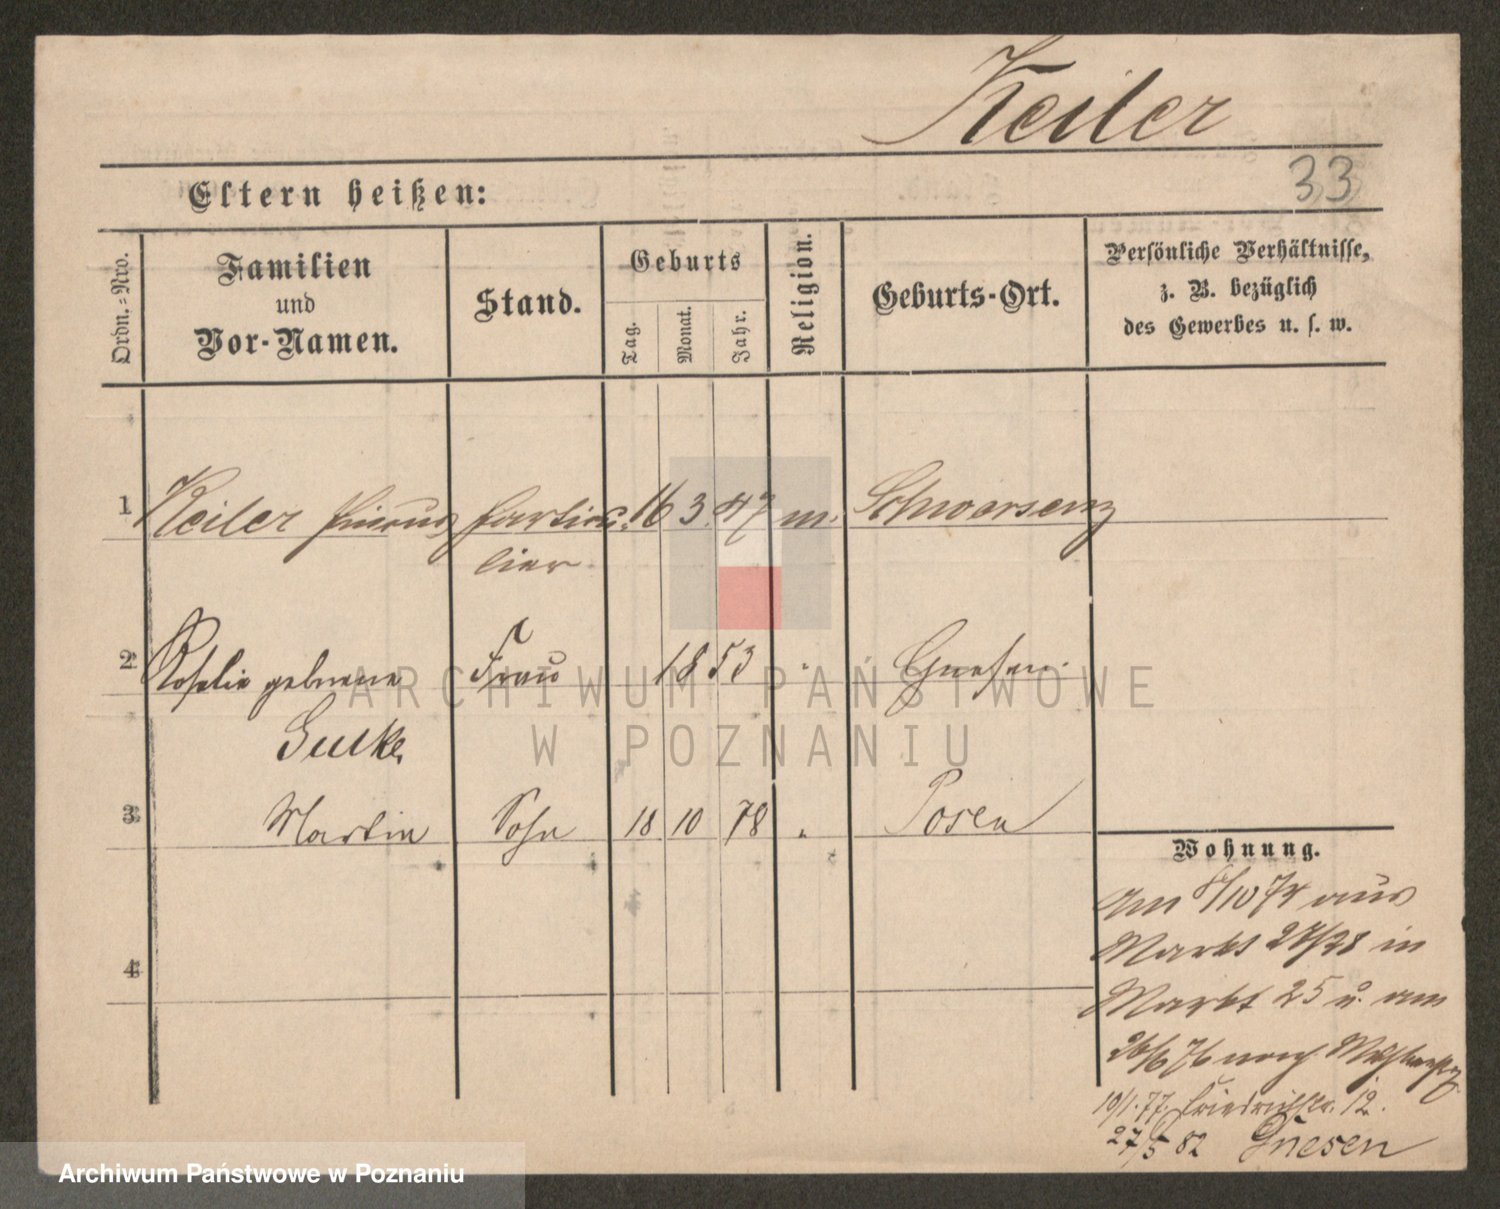 Keiler
33
Eltern heißen:
Ordn.=Nro.
Familien
und
Vor-Namen.
Stand.
Geburts
Tag.
Monat.
Jahr.
Religion.
Geburts-Ort.
Persönliche Verhältnisse,
z. B. bezüglich
des Gewerbes u. s. w.
1 Keiler Pincus Particu- 16 3 47 m. Schwersenz
lier
2 Rosalie geborene Frau 1853 " Gnesen
3 Martin Sohn 18 10 78 " Posen
4
Wohnung.
am 8/10 74 aus
Markt 27/28 in
Markt 25 u. am
26/6 76 nach
10/1. 77. Friedrichstr. 12.
27/5 82 Gnesen
ARCHIWUM PAŃSTWOWE
W POZNANIU
Archiwum Państwowe w Poznaniu